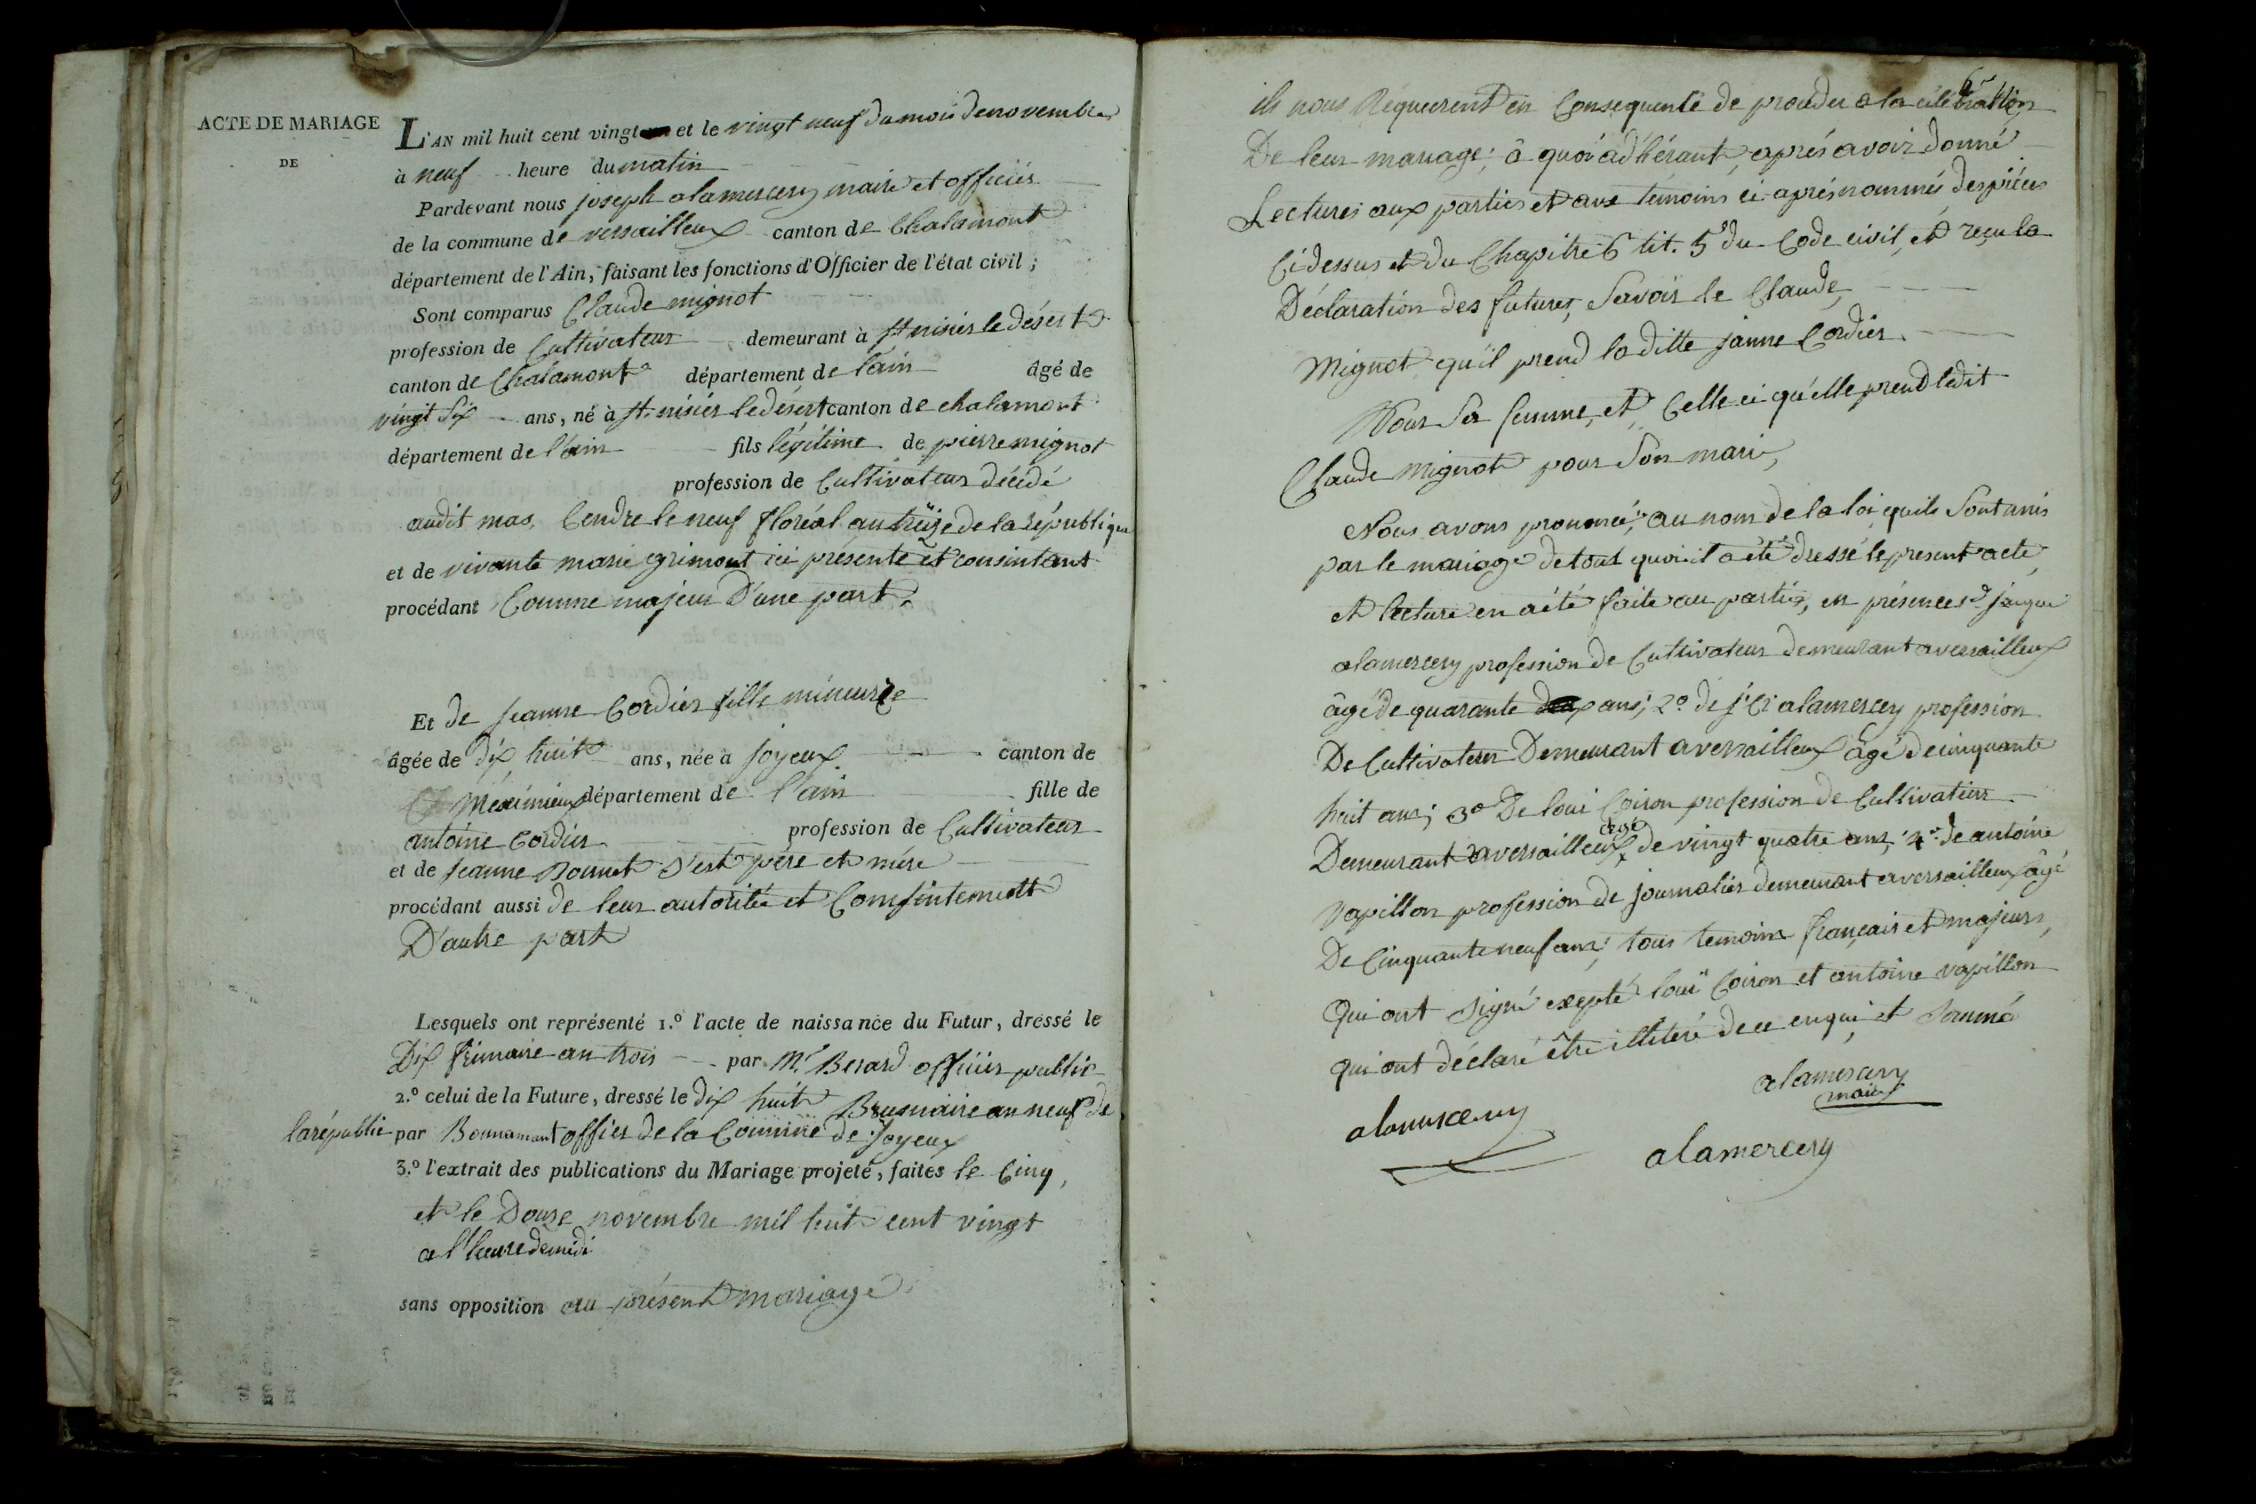 ACTE DE MARIAGE
DE
L'AN mil huit cent vingt et le vingt neuf du mois de novembre
à neuf heure du matin
Pardevant nous joseph alamercery maire et officier
de la commune de versailleux canton de Chalamont
département de l'Ain, faisant les fonctions d'Officier de l'état civil ;
Sont comparus Claude mignot
profession de Cultivateur demeurant à st nisier le désert
canton de Chalamont département de l'ain âgé de
vingt six ans, né à st. nisier le desert canton de chalamont
département de l'ain fils légitime de pierre mignot
profession de Cultivateur décédé
audit mas, Cendre le neuf floréal an treize de la république
et de vivante marie grimont ici présente et consintant
procédant Comme majeur D'une part.
Et de jeanne Cordier fille mineure
âgée de dix huit ans, née à joyeux canton de
Meximieux département de l'ain fille de
antoine Cordier profession de Cultivateur
et de jeanne Bonnet s'est père et mére
procédant aussi de leur autorité et Consintement
D'autre part
Lesquels ont représenté 1.º l'acte de naissance du Futur, dressé le
Dix frimaire an trois par Mr Berard officier public
2.º celui de la Future, dressé le dix huit Brumaire an neuf de
la républic par Bonnamant offier de la Commune de Joyeux
3.º l'extrait des publications du Mariage projeté, faites le Cinq,
et le Douze novembre mil huit cent vingt
a l'heure de midi
sans opposition au présent mariage
6
ils nous Réquerent en Consequente de proceder a la célébration
De leur mariage ; à quoi adhérant, aprés avoir donné
Lectures aux parties et aux temoins ci aprés nommés, des piéces
Ci dessus et du Chapitre 6 tit. 5 du Code civil, et reçu la
Déclaration des futures, Savoir le Claude
Mignot qu'il prend la ditte janne Cordier
Pour Sa femme, et Celle ci qu'elle prend ledit
Claude Mignot pour Son mari,
Nous avons prononcé, au nom de la loi, quils Sont unis
par le mariage de tout quoi il a été dressé le present acte,
et lecture en a été faite au partis, en présences d jaque
alamercery profession de Cultivateur demeurant a versailleux
âgé de quarante ans ; 2º de alamercery profession
De Cultivateur Demeurant a versailleux âgé de cinquante
huit ans ; 3º De loui Coiron profession de Cultivateur
Demeurant a versailleux agé de vingt quatre ans ; 4º de antoine
vapillon profession de journalier demeurant a versailleux âgé
De Cinquante neuf ans ; tous temoins français et majeurs,
Qui ont signé exepté loui Coiron et antoine vapillon
qui ont déclaré être illiteré de ce enqui et Sommé
alamercery
maire
alamercery
alamercery